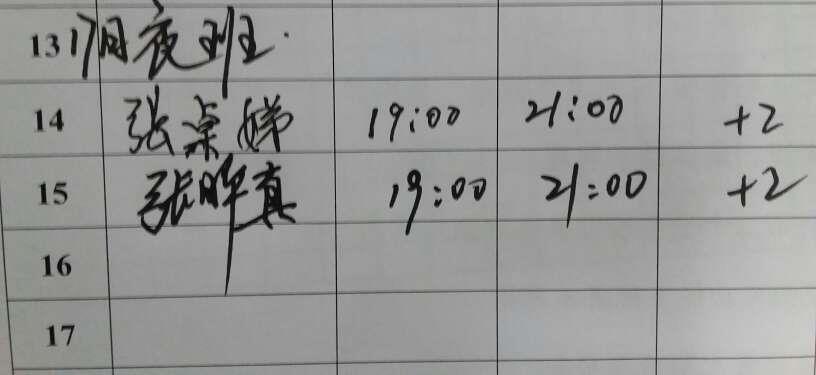 13 17日夜班.
14 张桌娣 19:00 21:00 +2
15 张晔真 19:00 21:00 +2
16
17